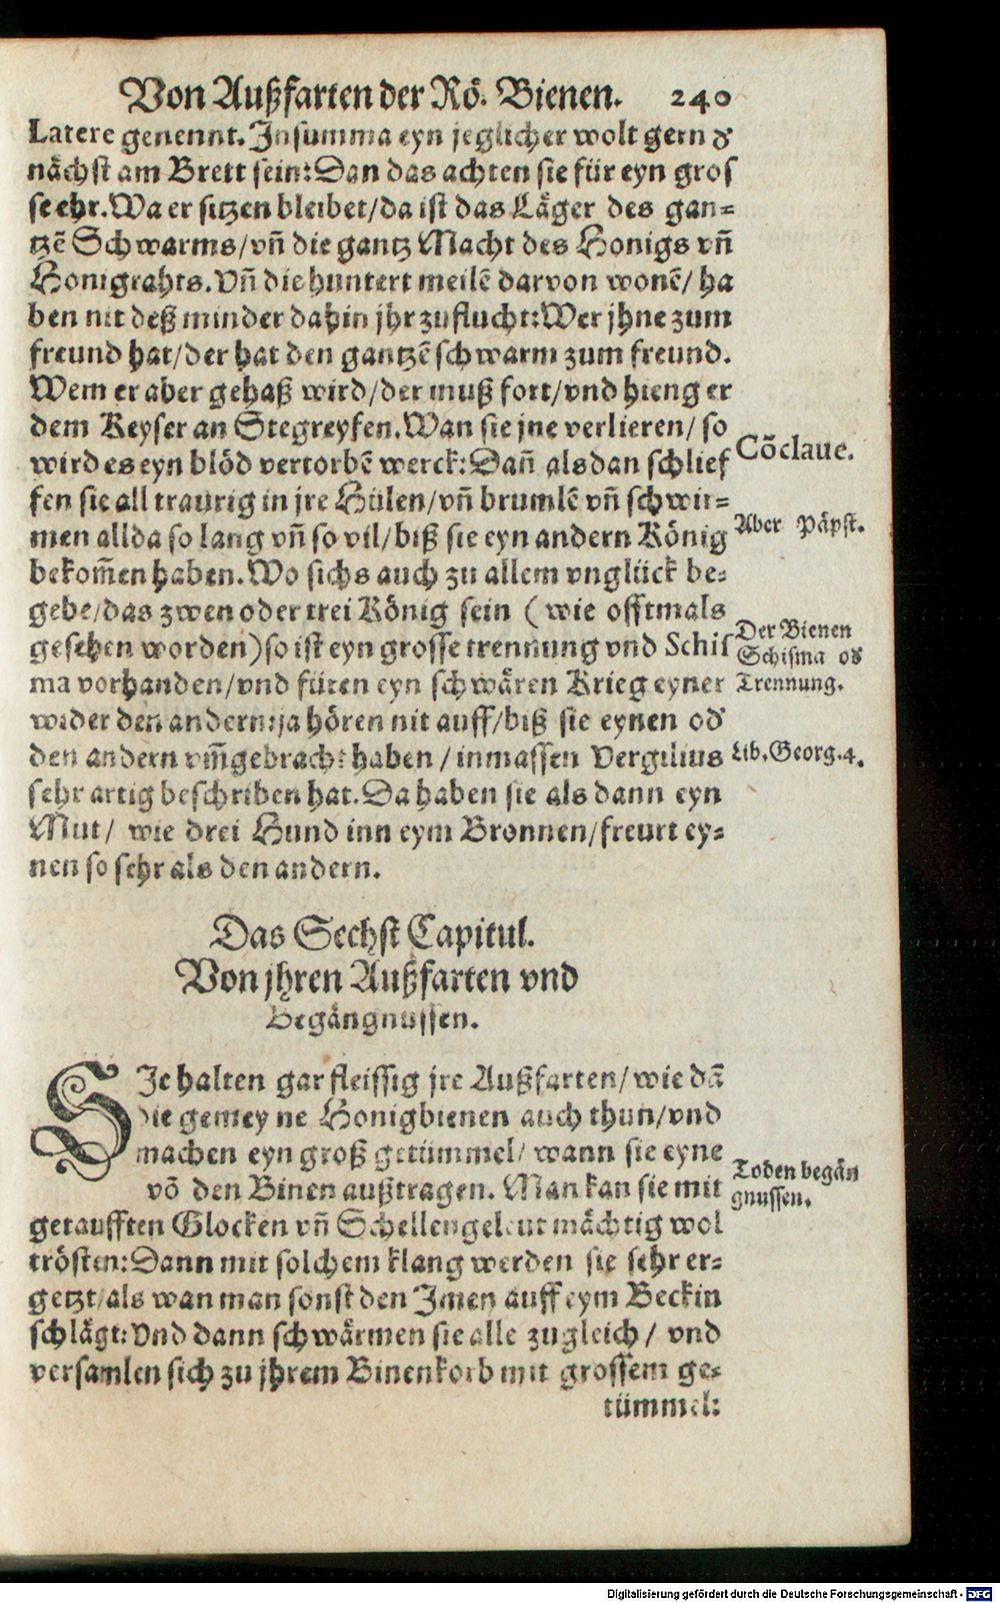 Von Außfarten der Rö. Bienen. 240
Latere genennt. Jn summa eyn jeglicher wolt gern d̓
nächst am Brett sein: Dan das achten sie für eyn gros
se ehr. Wa er sitzen bleibet/da ist das Läger des gan-
tzē Schwarms/vn̄ die gantz Macht des Honigs vn̄
Honigrahts. Vn̄ die huntert meilē darvon wonē/ ha
ben nit deß minder dahin jhr zuflucht: Wer jhne zum
freund hat/der hat den gantzē schwarm zum freund.
Wem er aber gehaß wird/der muß fort/vnd hieng er
dem Keyser an Stegreyfen. Wan sie jne verlieren/ so
wird es eyn blöd vertorbē werck: Dan̄ als dan schlief
fen sie all traurig in jre Hülen/vn̄ brumlē vn̄ schwir-
men allda so lang vn̄ so vil/biß sie eyn andern König
bekom̄en haben. Wo sichs auch zu allem vnglück be-
gebe/das zwen oder trei König sein (wie offtmals
gesehen worden) so ist eyn grosse trennung vnd Schis
ma vorhanden/vnd füren eyn schwären Krieg eyner
wider den andern: ja hören nit auff/biß sie eynen od̓
den andern vm̄gebracht haben / inmassen Vergilius
sehr artig beschriben hat. Da haben sie als dann eyn
Mut/ wie drei Hund inn eym Bronnen/freurt ey-
nen so sehr als den andern.
Cōclaue.
Aber Päpst.
Der Bienen
Schisma od̓
Trennung.
Lib. Georg. 4.
Das Sechst Capitul.
Von jhren Außfarten vnd
Begängnussen.
SJe halten gar fleissig jre Außfarten/wie dā
die gemeyne Honigbienen auch thun/vnd
machen eyn groß getümmel/ wann sie eyne
vō den Binen außtragen. Man kan sie mit
getaufften Glocken vn̄ Schellengeleut mächtig wol
trösten: Dann mit solchem klang werden sie sehr er-
getzt/als wan man sonst den Jmen auff eym Beckin
schlägt: Vnd dann schwärmen sie alle zugleich/ vnd
versamlen sich zu jhrem Binenkorb mit grossem ge-
tümmel:
Toden begän
gnussen.
Digitalisierung gefördert durch die Deutsche Forschungsgemeinschaft - DFG